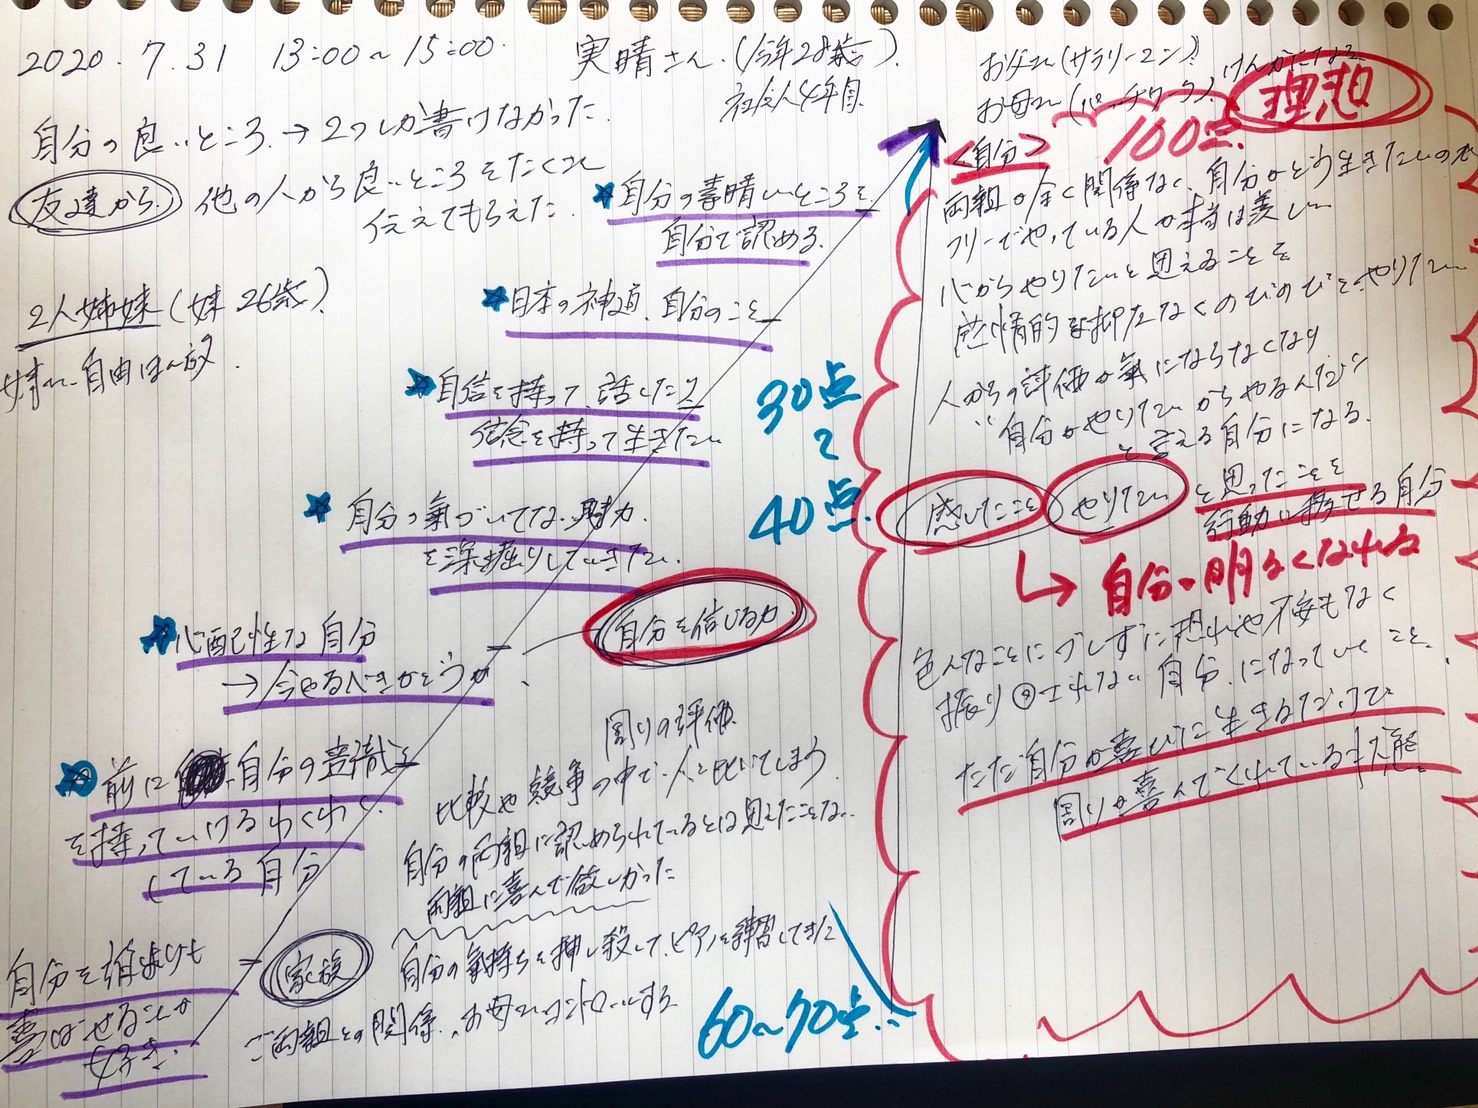 2020.7.31 13:00~15:00.
実晴さん.(今年28歳).
社会人4年目.
お父さん(サラリーマン)
お母さん(パッチワーク).けんかになる
理想
100点.
自分の良いところ.→2つしか書けなかった.
友達から.
他の人から良いところをたくさん
伝えてもらえた.
2人姉妹(妹 26歳).
妹さん 自由ほん放
★自分の素晴しいところを
自分で認める.
★日本の神道、自分のこと
★自信を持って、話したり
信念を持って生きたい
★自分の気づいてない魅力.
を深掘りしていきたい.
★心配性な自分
→今やるべきかどうか
自分を信じる力.
★前に 自分の意識を
を持っていけるわくわく
している自分
自分を誰よりも
喜ばせることが
好き.
家族
30点
40点.
60~70点.
周りの評価.
比較や競争の中で人と比べてしまう
自分の両親に認められているとは思えたことない.
両親に喜んで欲しかった
自分の気持ちを押し殺して、ピアノを練習してきた
ご両親との関係、お母さんコントロールする
<自分>
両親が全く関係なく、自分がどう生きたいのか
フリーでやっている人が本当は羨しい
心からやりたいと思えることを
感情的な抑えなくのびのびとやりたい
人からの評価が気にならなくなり
"自分がやりたいからやるんだ"
と言える自分になる.
感じたこと やりたい と思ったことを
行動に移せる自分
↳ 自分が明るくなれる
色んなことにブレずに恐れや不安もなく
振り回されない自分.になっていくこと.
ただ自分が喜びに生きるだけで
周りが喜んでくれている状態